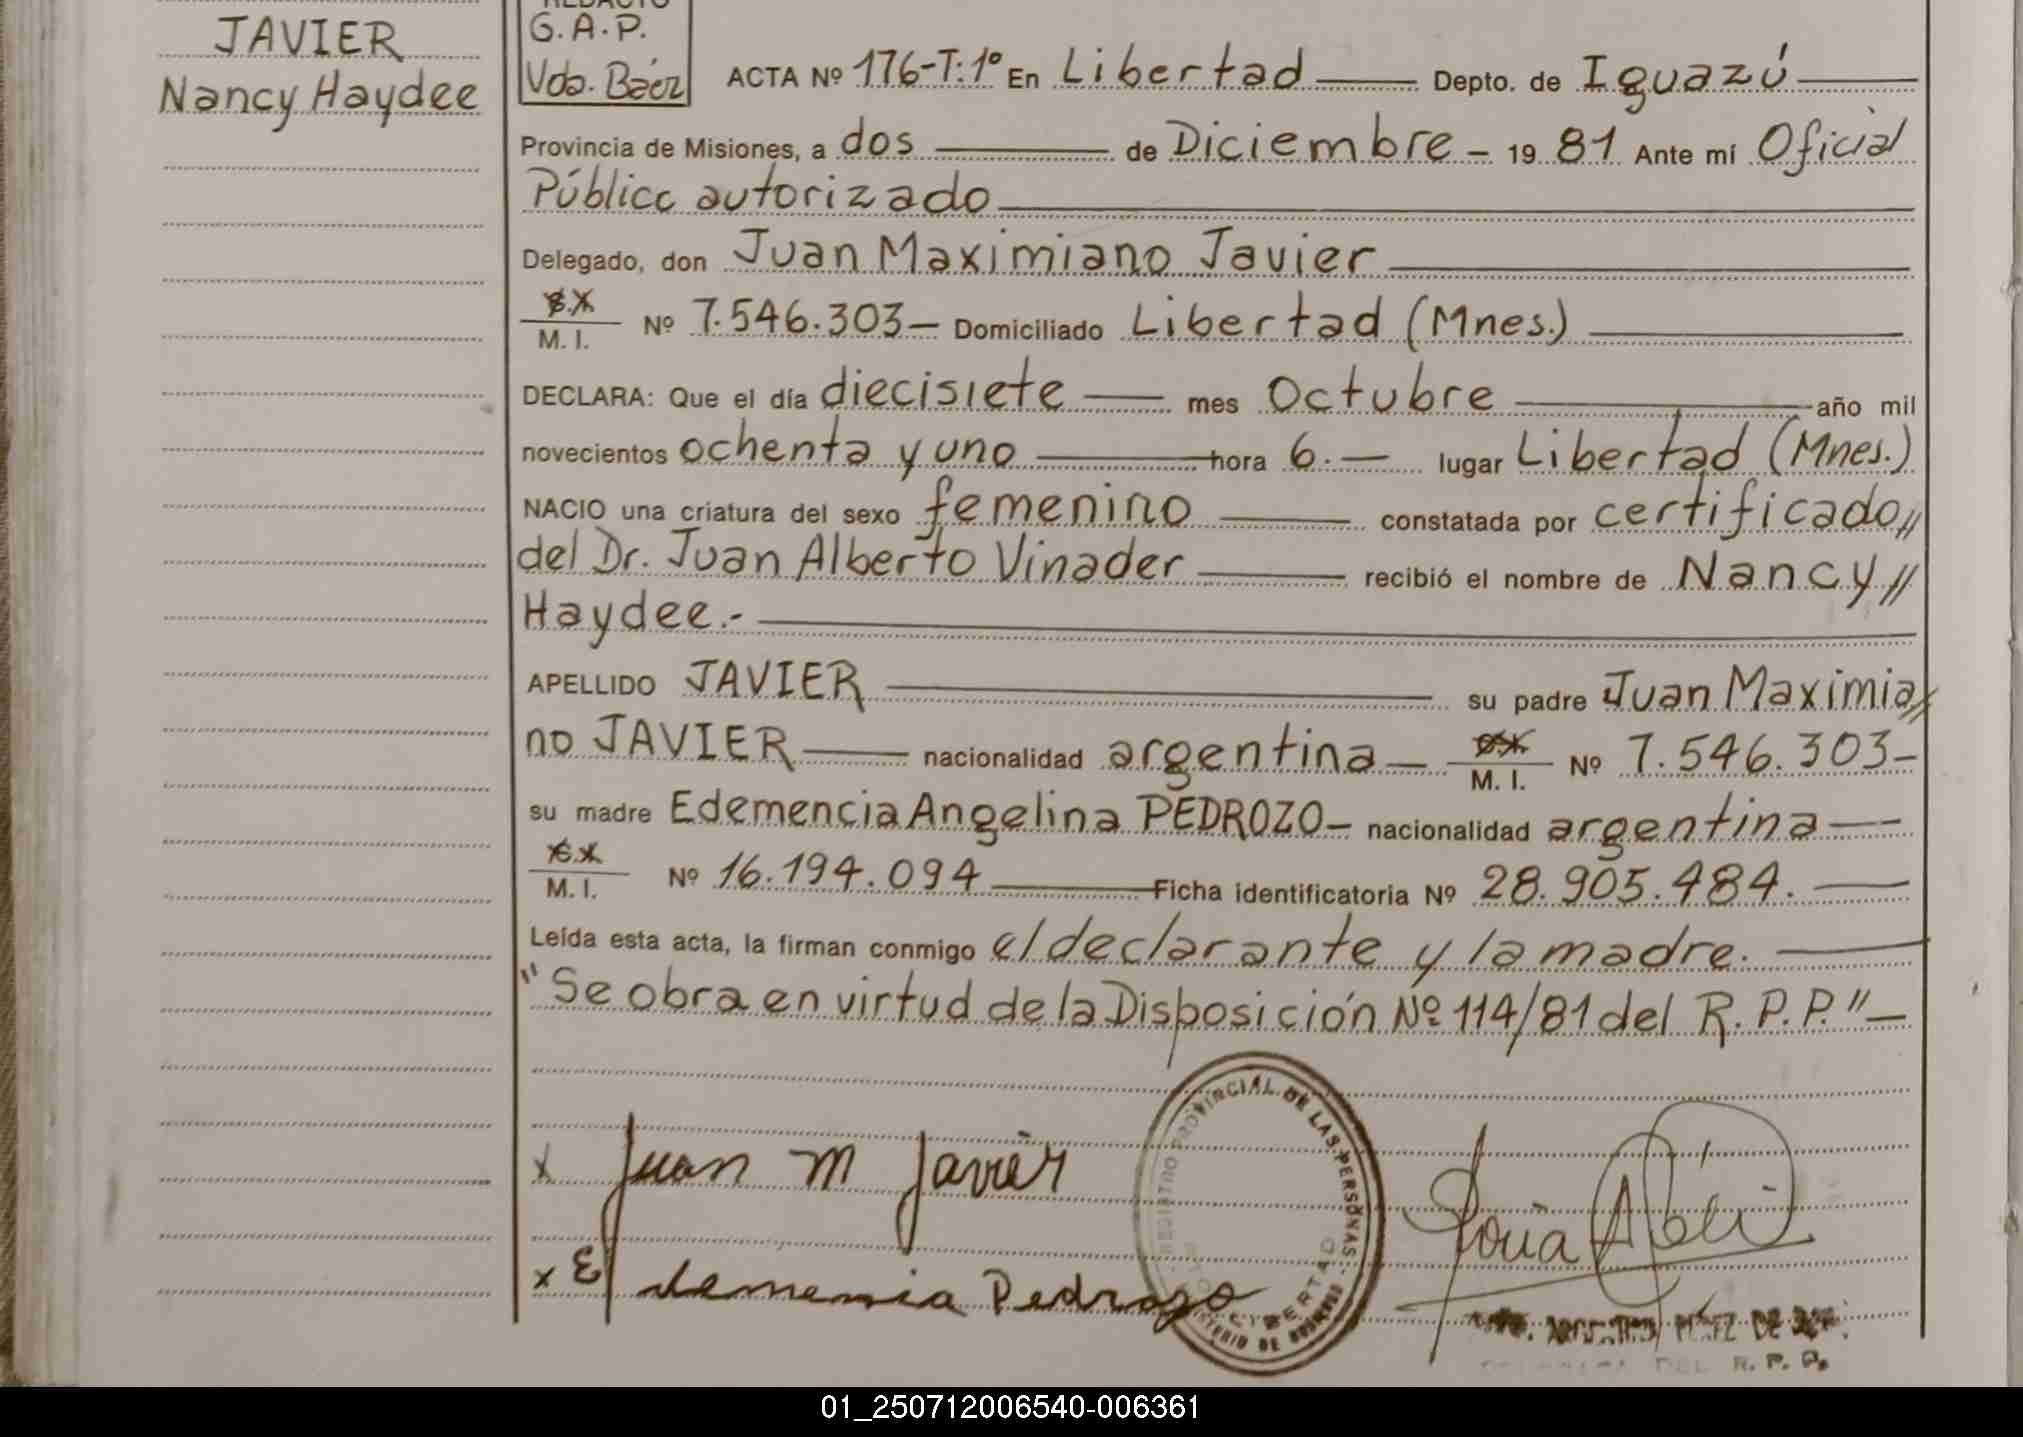 JAVIER
Nancy Haydee
REDACTO
G.A.P.
Vda. Báez
ACTA Nº 176-T:1º En Libertad Depto. de Iguazú
Provincia de Misiones, a dos de Diciembre - 19 81 Ante mí Oficial
Público autorizado
Delegado, don Juan Maximiano Javier
M. I. Nº 7.546.303- Domiciliado Libertad (Mnes.)
DECLARA: Que el día diecisiete mes Octubre año mil
novecientos ochenta y uno hora 6.- lugar Libertad (Mnes.)
NACIO una criatura del sexo femenino constatada por certificado//
del Dr. Juan Alberto Vinader recibió el nombre de Nancy//
Haydee.-
APELLIDO JAVIER su padre Juan Maximia//
no JAVIER nacionalidad argentina - M. I. Nº 7.546.303-
su madre Edemencia Angelina PEDROZO- nacionalidad argentina
M. I. Nº 16.194.094 Ficha identificatoria Nº 28.905.484.
Leída esta acta, la firman conmigo el declarante y la madre.
"Se obra en virtud de la Disposición Nº 114/81 del R.P.P."-
x Juan M Javier
x Edemencia Pedrozo
REGISTRO PROVINCIAL DE LAS PERSONAS
LIBERTAD
MINISTERIO DE GOBIERNO
DEL R. P. P.
01_250712006540-006361